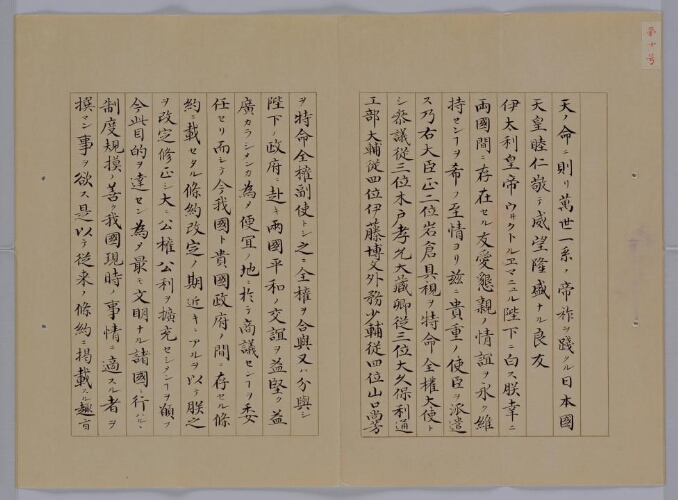 第十号
天ノ命ニ則リ萬世一系ノ帝祚ヲ踐タル日本國
天皇睦仁敬テ威望隆盛ナル良友
伊太利皇帝ウ井クトルエマニュル陛下ニ白ス朕幸ニ
両國間ニ存在セル友愛懇親ノ情誼ヲ永ク維
持センヿヲ希ノ至情ヨリ茲ニ貴重ノ使臣ヲ派遣
ス乃右大臣正二位岩倉具視ヲ特命全權大使ト
シ参議従三位木戸孝允大藏卿従三位大久保利通
工部大輔従四位伊藤博文外務少輔従四位山口尚芳
ヲ特命全權副使トシ之ニ全權ヲ合與又ハ分與シ
陛下ノ政府ニ赴キ両國平和ノ交誼ヲ益堅ク益
廣カラシメンカ為メ便宜ノ地ニ於テ商議センヿヲ委
任セリ而シテ今我國ト貴國政府ノ間ニ存セル條
約ニ載セタル條約改定ノ期近キニアルヲ以テ朕之
ヲ改定修正シ大ニ公權公利ヲ擴充セシメンヿヲ願フ
今此目的ヲ達セン為メ最モ文明ナル諸國ニ行ハルヽ
制度規摸ノ善ク我國現時ノ事情ニ適スル者ヲ
撰マン事ヲ欲ス是以テ従来ノ條約ニ掲載スル趣旨